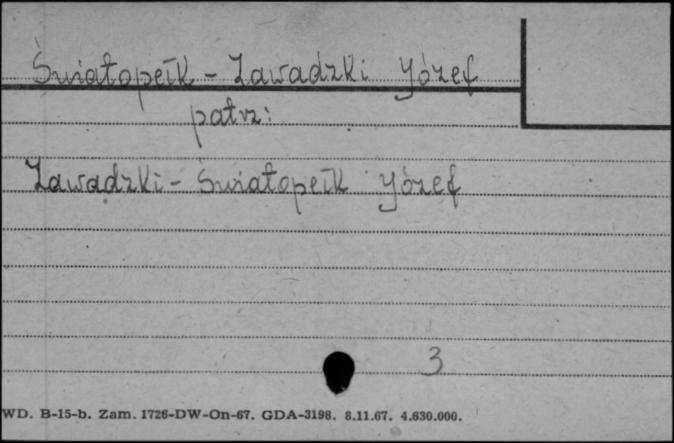 Światopełk - Zawadzki Józef
patrz:
Zawadzki - Światopełk Józef
3
WD. B-15-b. Zam. 1726-DW-On-67. GDA-3198. 8.11.67. 4.630.000.